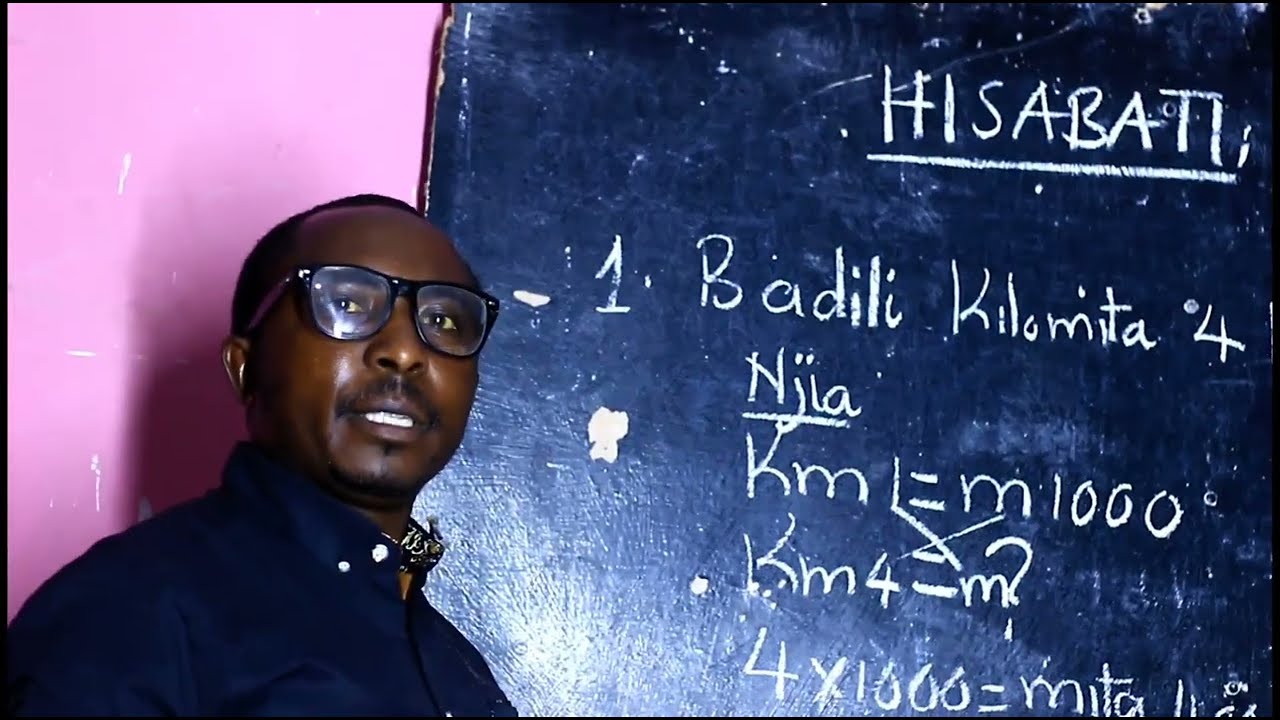 HISABATI
1. Badili Kilomita 4
Njia
Km 1 = m 1000
Km 4 = m?
4 x 1000 = mita